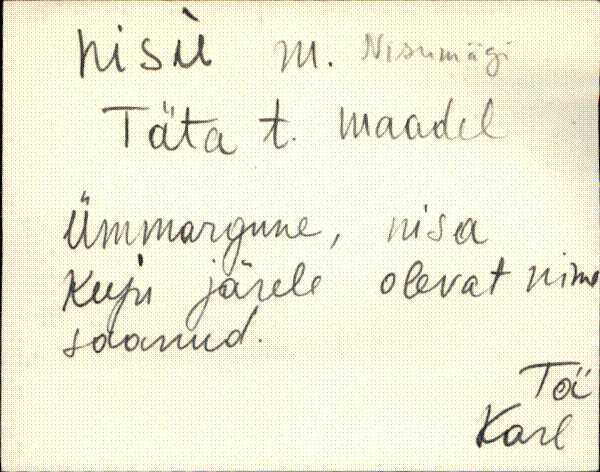 nisü m. Nisumägi
Täta t. maadel
Ümmargune, nisa
kuju järele olevat nime
saanud.
Tä
Karl